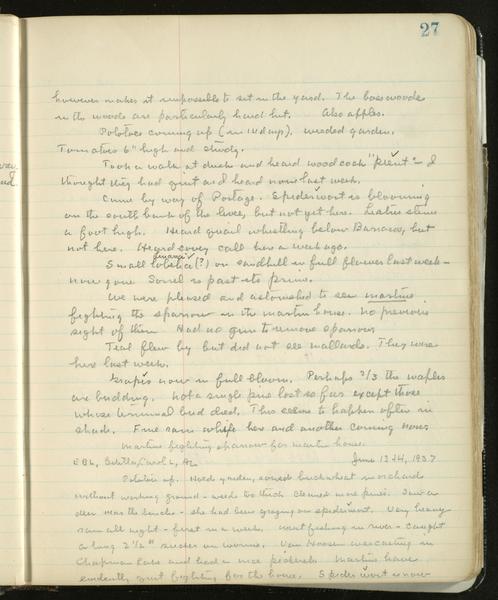 27
however makes it impossible to sit in the yard. The basswoods
in the woods are particularly hard hit. Also apples.
Potatoes coming up (in 14 days). Weeded garden.
Tomatoes 6" high and sturdy.
Took a walk at dusk and heard woodcock "peent" - I
thought they had quit as I heard none last week.
Came by way of Portage. Spiderwort is blooming
on the south bank of the river, but not yet here. Leaves
a foot high. Heard quail whistling below Baraboo, but
not here. Heard covey call here a week ago.
Small (?) on sandhill in full flower last week -
now gone. Sorrel is past its prime.
We were pleased and astonished to see martins
fighting the sparrow in the martin house. No previous
sight of them. Had no gun to remove sparrows
Teal flew by but did not see mallards. They were
here last week.
Grapes now in full bloom. Perhaps 2/3 the maples
are budding. Not a single pine lost so far except those
whose terminal bud died. This seems to happen often in
shade. Fine rain while here and another coming now
Martins fighting sparrow for martin house.
Estella, Carl L, AL
June 12-14, 1937
Potatoes up. Hoed garden, sowed buckwheat in orchard
without working ground - weeds too thick. Cleaned more pines. Saw a
deer near the - she had been grazing on spiderwort. Very heavy
rain all night - first in a week. Went fishing in river - caught
a long 2 1/2 # sucker on worms. Van was casting in
Chapman Lake and had a nice pickerel. Martins have
evidently quit fighting for the house. Spiderwort is now